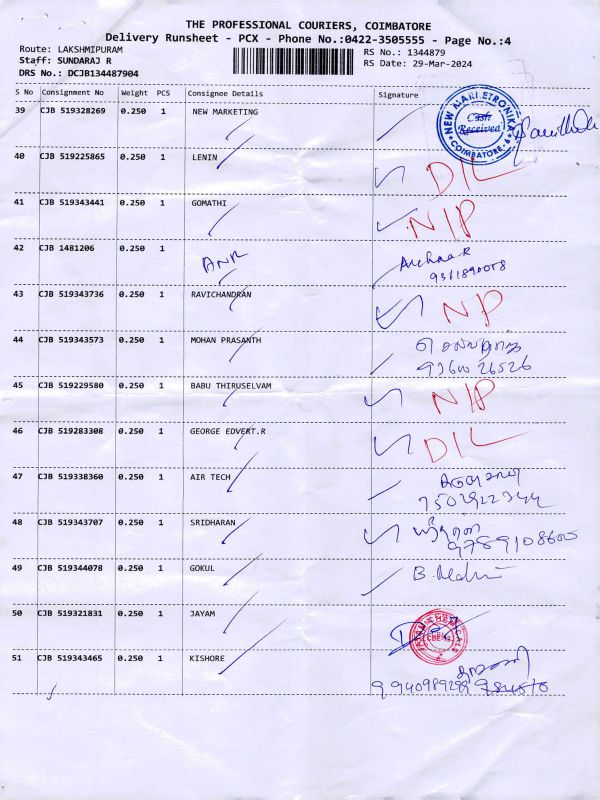 THE PROFESSIONAL COURIERS, COIMBATORE
Delivery Runsheet - PCX - Phone No.:0422-3505555 - Page No.:4
Route: LAKSHMIPURAM
RS No.: 1344879
Staff: SUNDARAJ R
RS Date: 29-Mar-2024
DRS No.: DCJB134487904
S No Consignment No Weight PCS Consignee Details Signature
39 CJB 519328269 0.250 1 NEW MARKETING
NEW MARK ELETRONIKA
Cash
Received
COIMBATORE
40 CJB 519225865 0.250 1 LENIN DIL
41 CJB 519343441 0.250 1 GOMATHI N/P
42 CJB 1481206 0.250 1 ANR Archna R
9361890078
43 CJB 519343736 0.250 1 RAVICHANDRAN NP
44 CJB 519343573 0.250 1 MOHAN PRASANTH
93600 26526
45 CJB 519229580 0.250 1 BABU THIRUSELVAM N/P
46 CJB 519283308 0.250 1 GEORGE EDVERT.R DIL
47 CJB 519338360 0.250 1 AIR TECH
48 CJB 519343707 0.250 1 SRIDHARAN
49 CJB 519344078 0.250 1 GOKUL B.
50 CJB 519321831 0.250 1 JAYAM
51 CJB 519343465 0.250 1 KISHORE